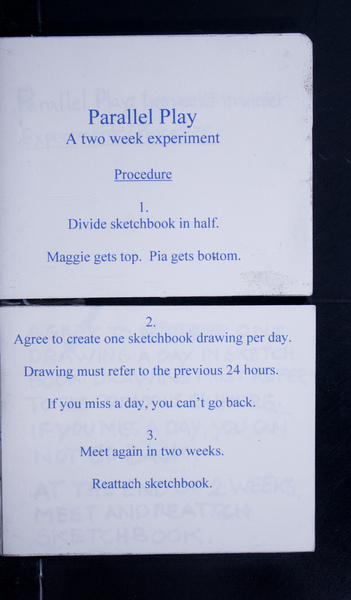 Parallel Play
A two week experiment
Procedure
1.
Divide sketchbook in half.
Maggie gets top. Pia gets bottom.
2.
Agree to create one sketchbook drawing per day.
Drawing must refer to the previous 24 hours.
If you miss a day, you can't go back.
3.
Meet again in two weeks.
Reattach sketchbook.